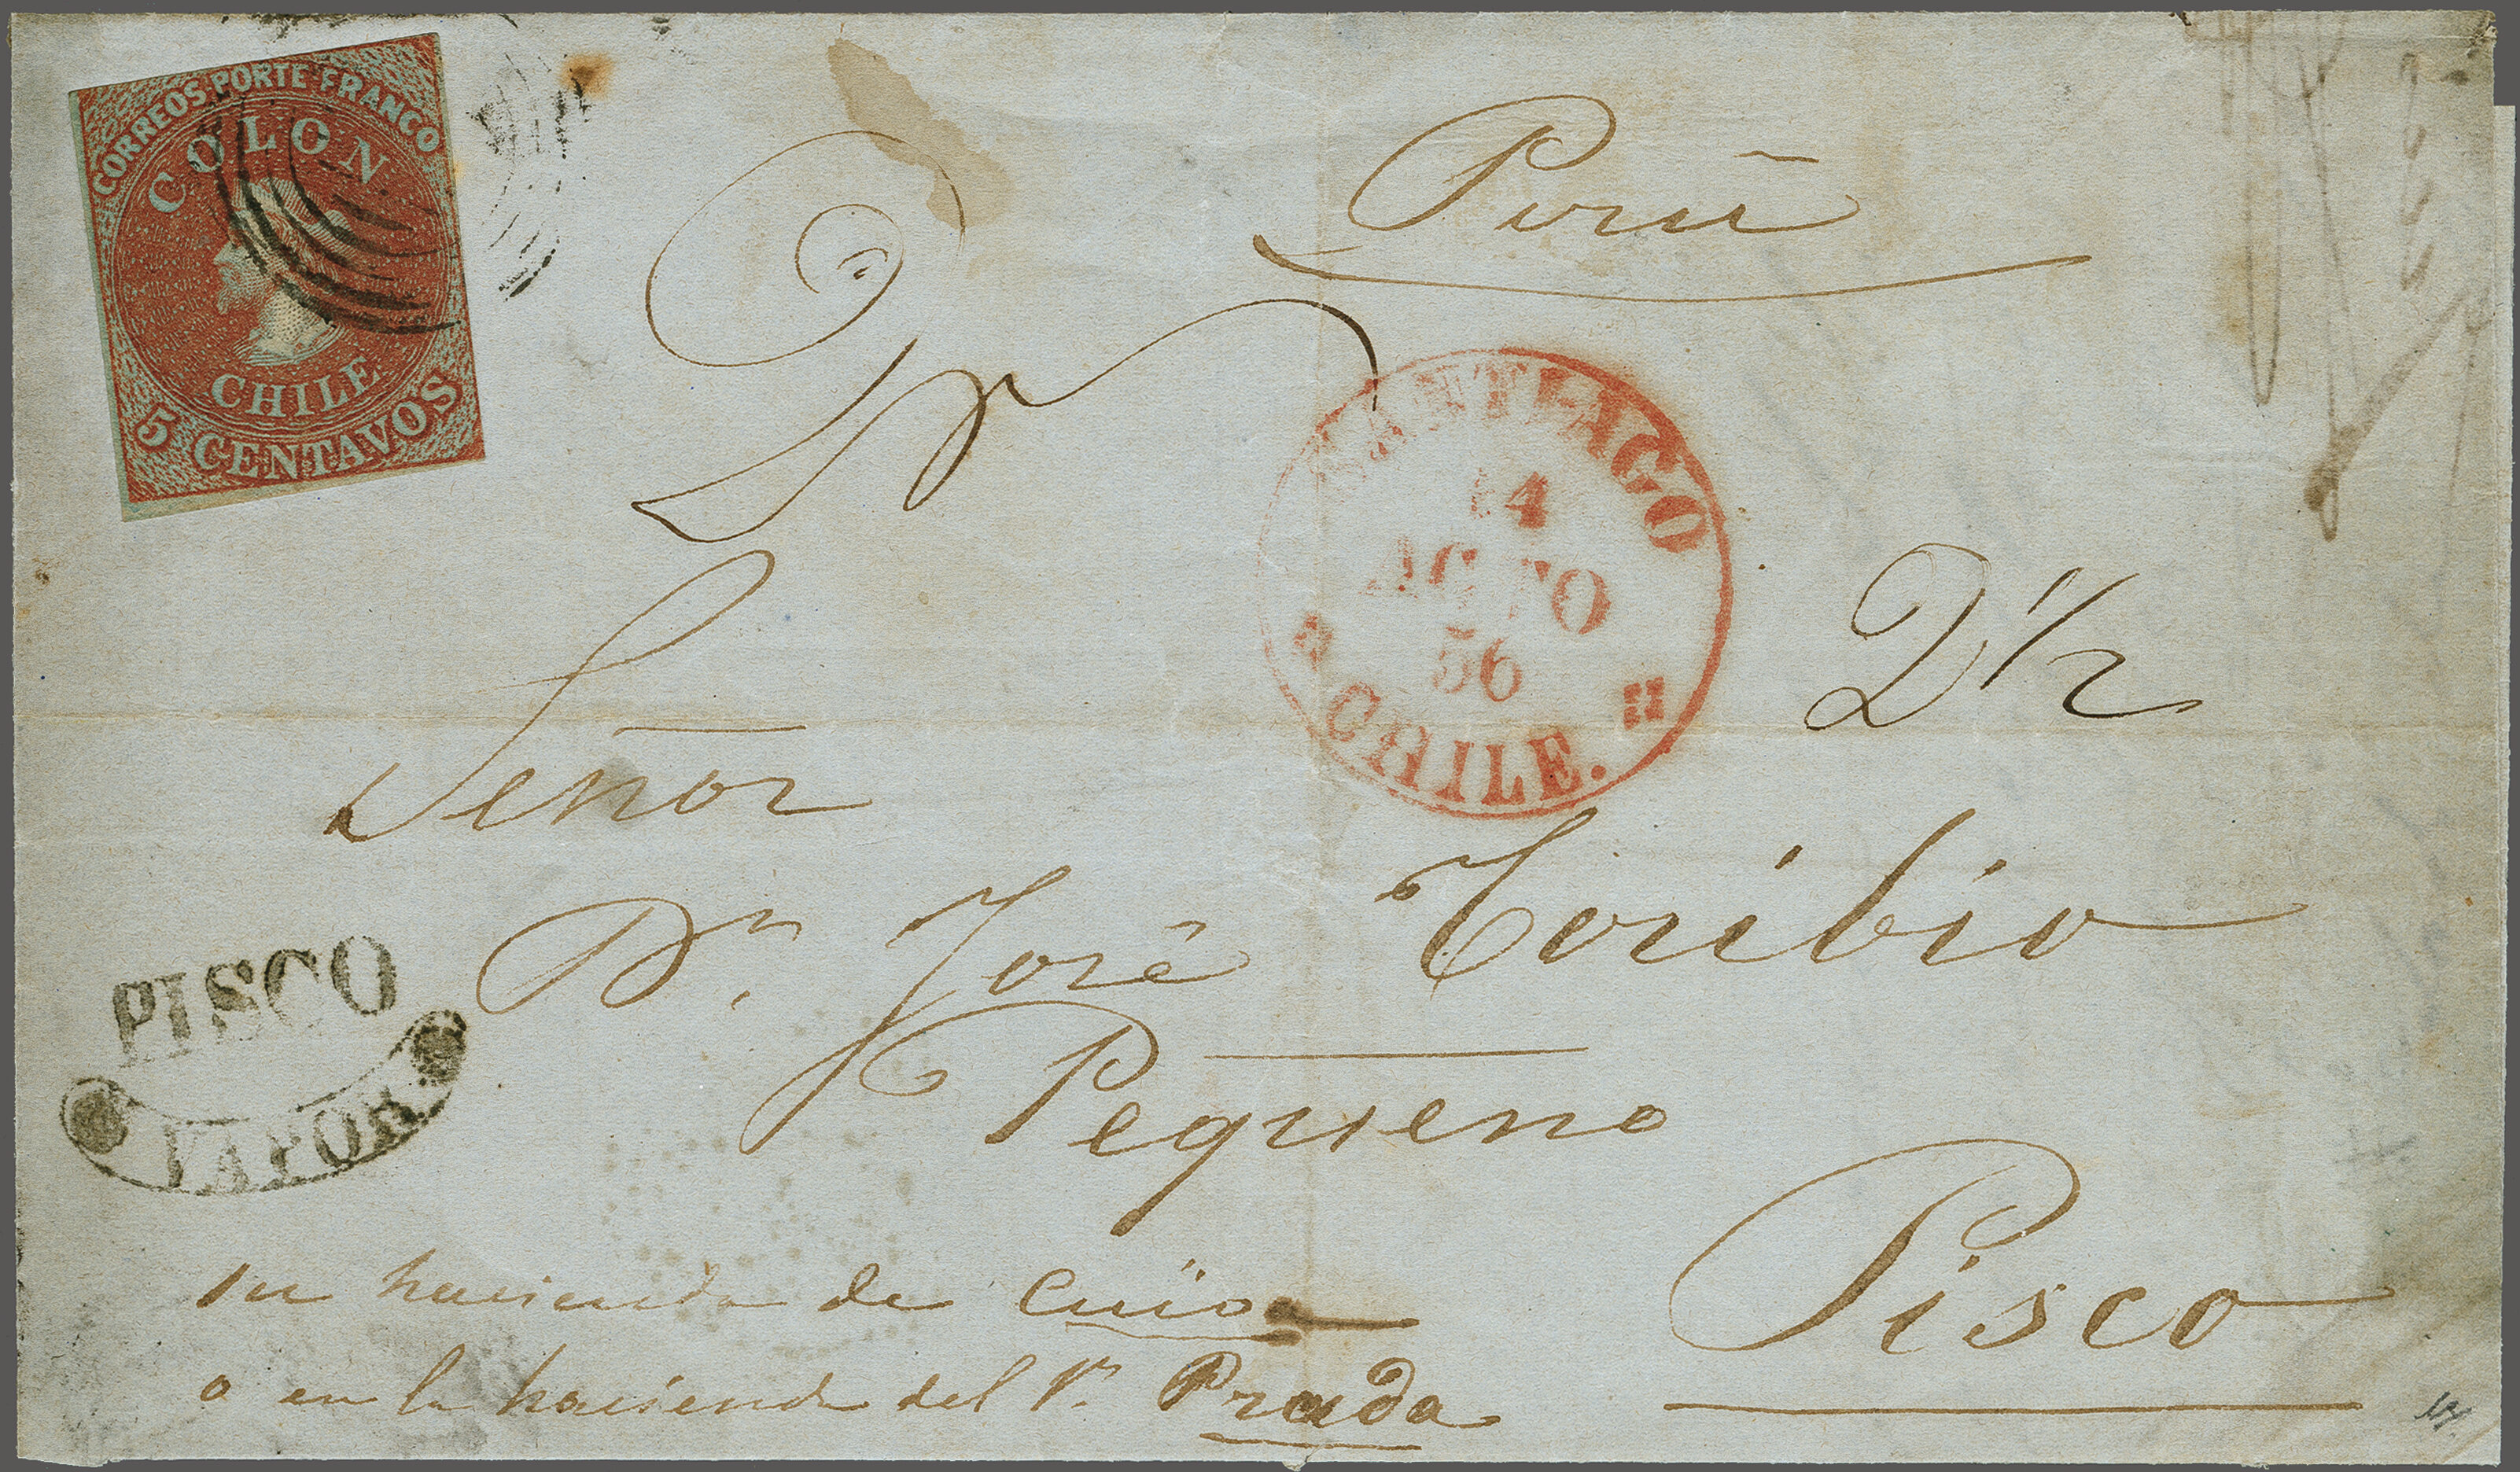 CORREOS PORTE FRANCO
COLON
CHILE
5 CENTAVOS
Perú
SANTIAGO
14
AGTO
56
CHILE.
2 1/2
Señor
Dn. José Toribio
Pequeno
PISCO
VAPOR.
Pisco
su hacienda de
o en la hacienda del Sr. Prada